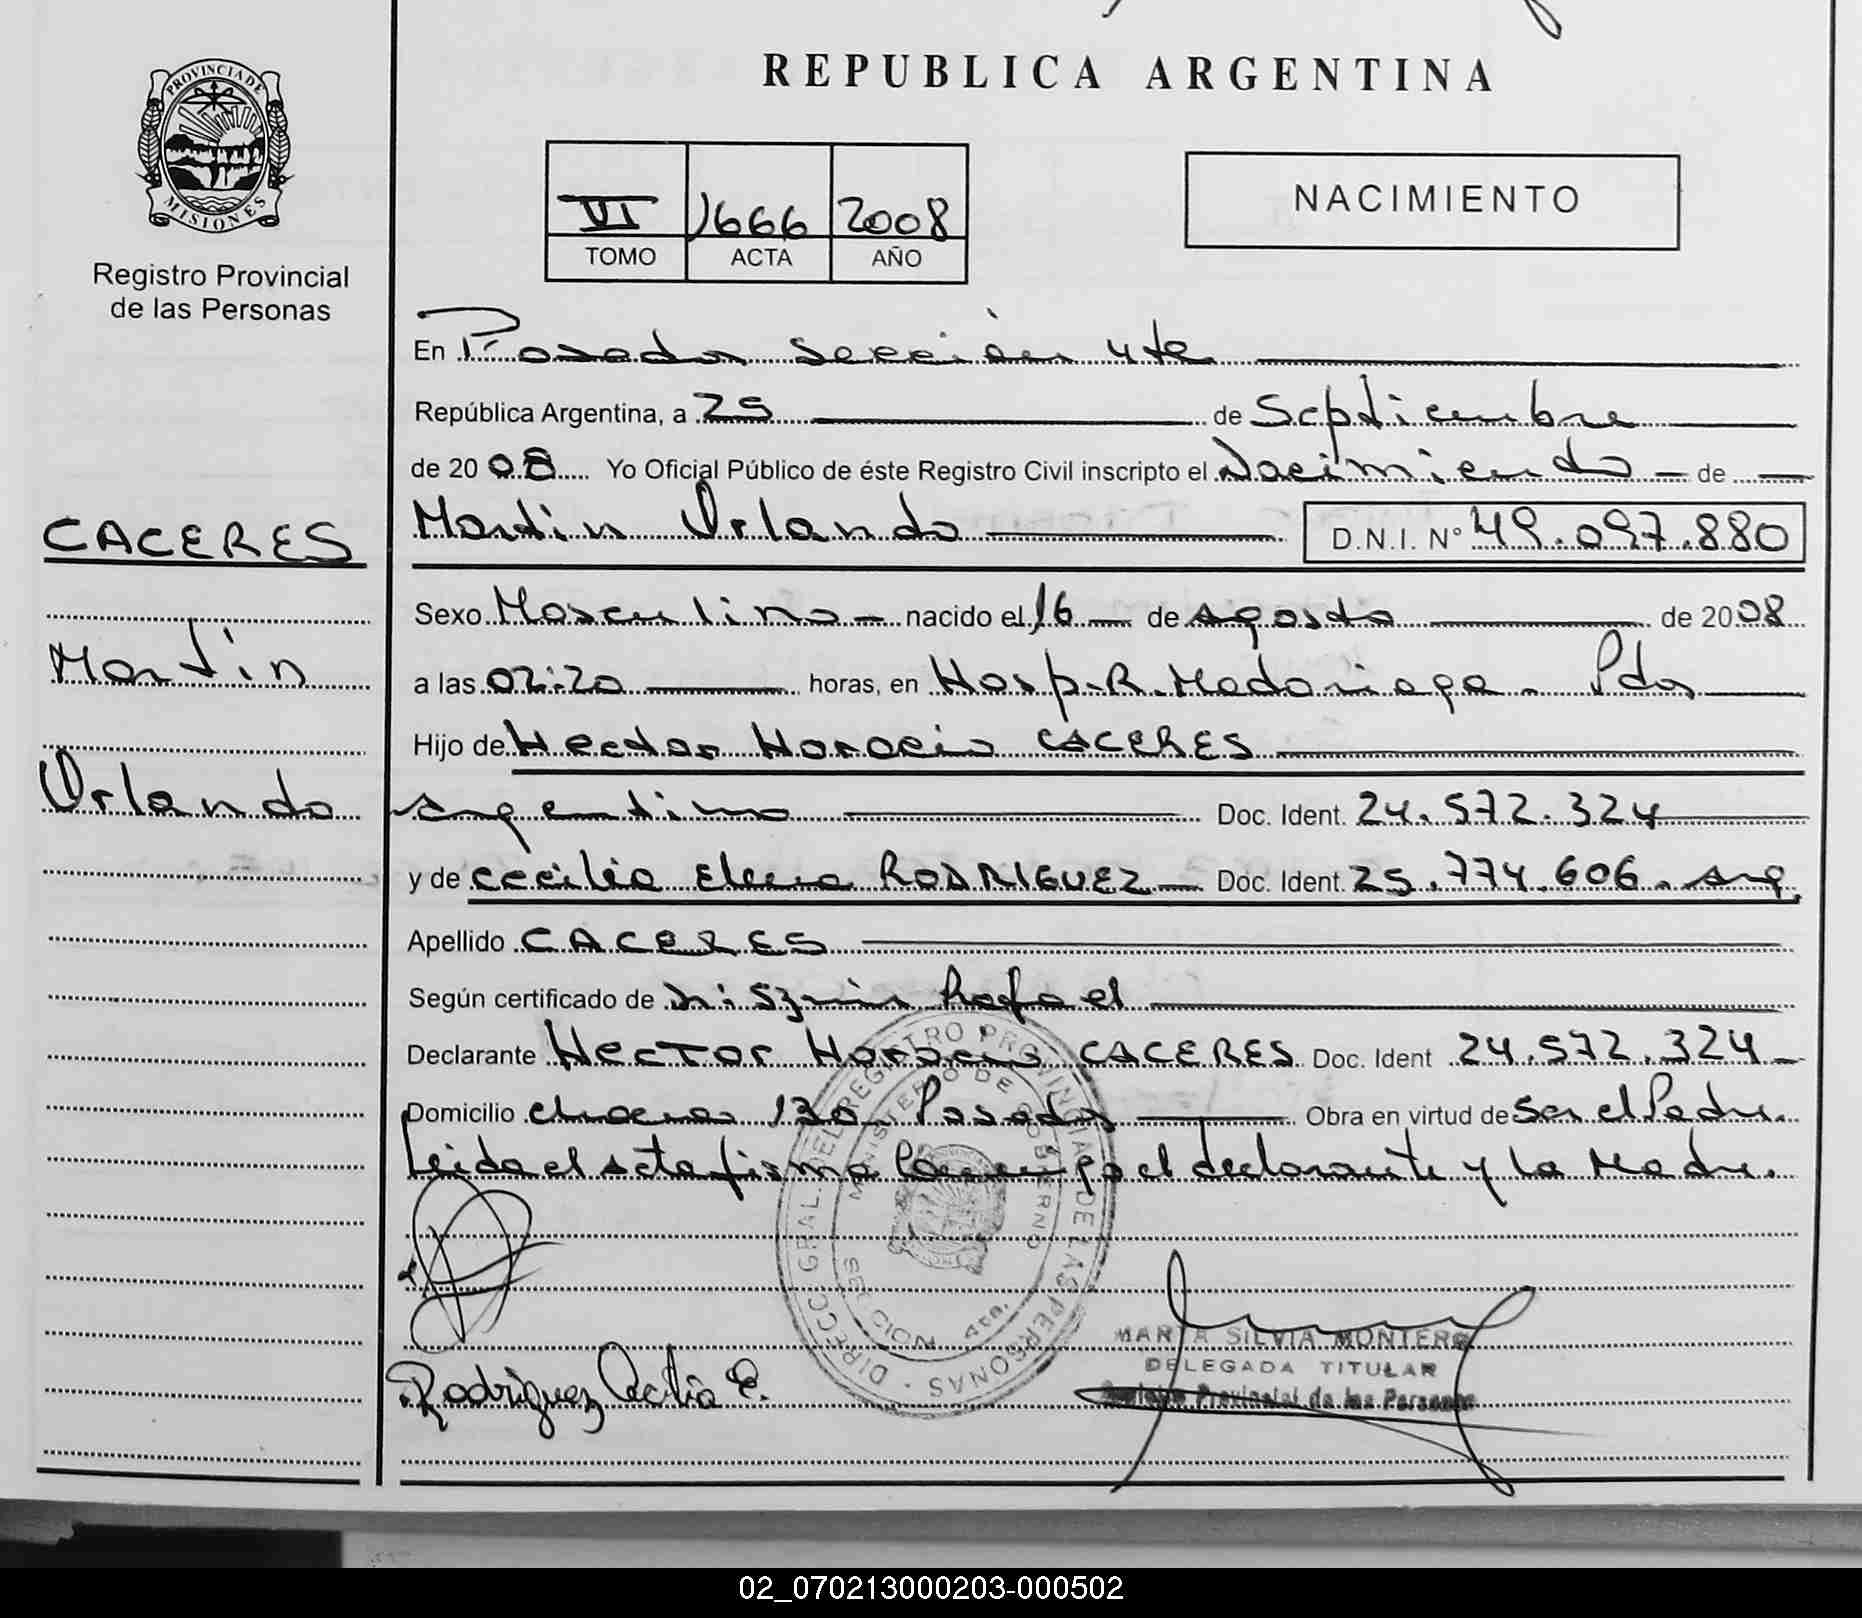 REPUBLICA ARGENTINA
PROVINCIA DE
MISIONES
Registro Provincial
de las Personas
VI 1666 2008
TOMO ACTA AÑO
NACIMIENTO
En Posadas Sección 4ta
República Argentina, a 25 de Septiembre
de 2008 Yo Oficial Público de éste Registro Civil inscripto el Nacimiento - de
CACERES
Martin Orlando D.N.I. Nº 49.097.880
Sexo Masculino - nacido el 16 de agosto de 2008
Martin
a las 02:20 horas, en Hosp. R. Madariaga - Pdas
Hijo de Hector Horacio CACERES
Orlando
argentino Doc. Ident. 24.572.324
y de Cecilia Elena RODRIGUEZ Doc. Ident. 25.774.606. arg.
Apellido CACERES
Según certificado de Rafael
Declarante HECTOR Horacio CACERES Doc. Ident 24.572.324
Domicilio chacra 130 Posadas Obra en virtud de Ser el Padre.
Leida el acta firma el declarante y la Madre.
DIRECC. GRAL. DEL REGISTRO PROVINCIAL DE LAS PERSONAS
MINISTERIO DE GOBIERNO
4ta.
MARIA SILVIA MONTERO
DELEGADA TITULAR
Registro Provincial de las Personas
Rodriguez Cecilia E.
02_070213000203-000502